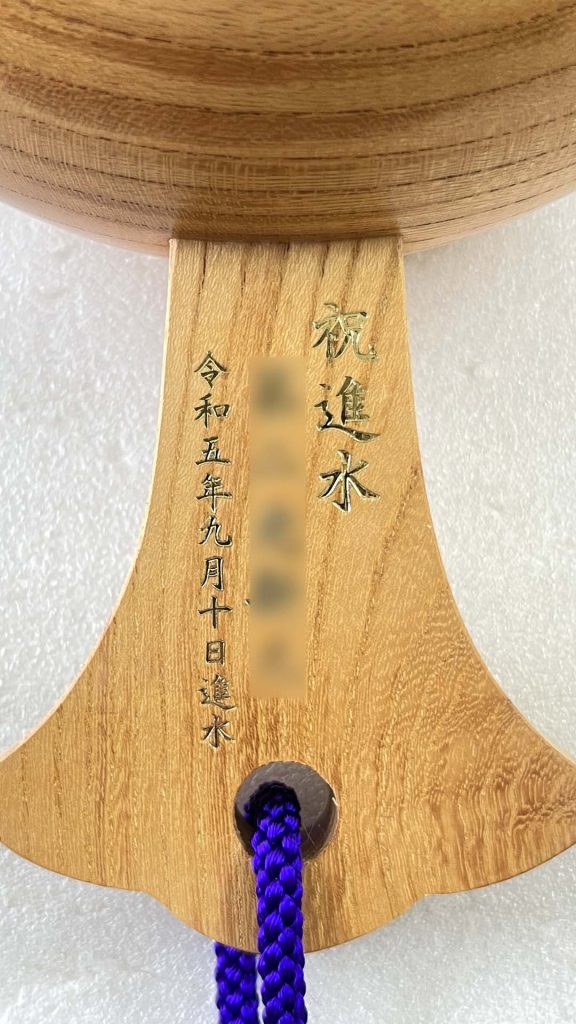 祝進水
令和五年九月十日進水